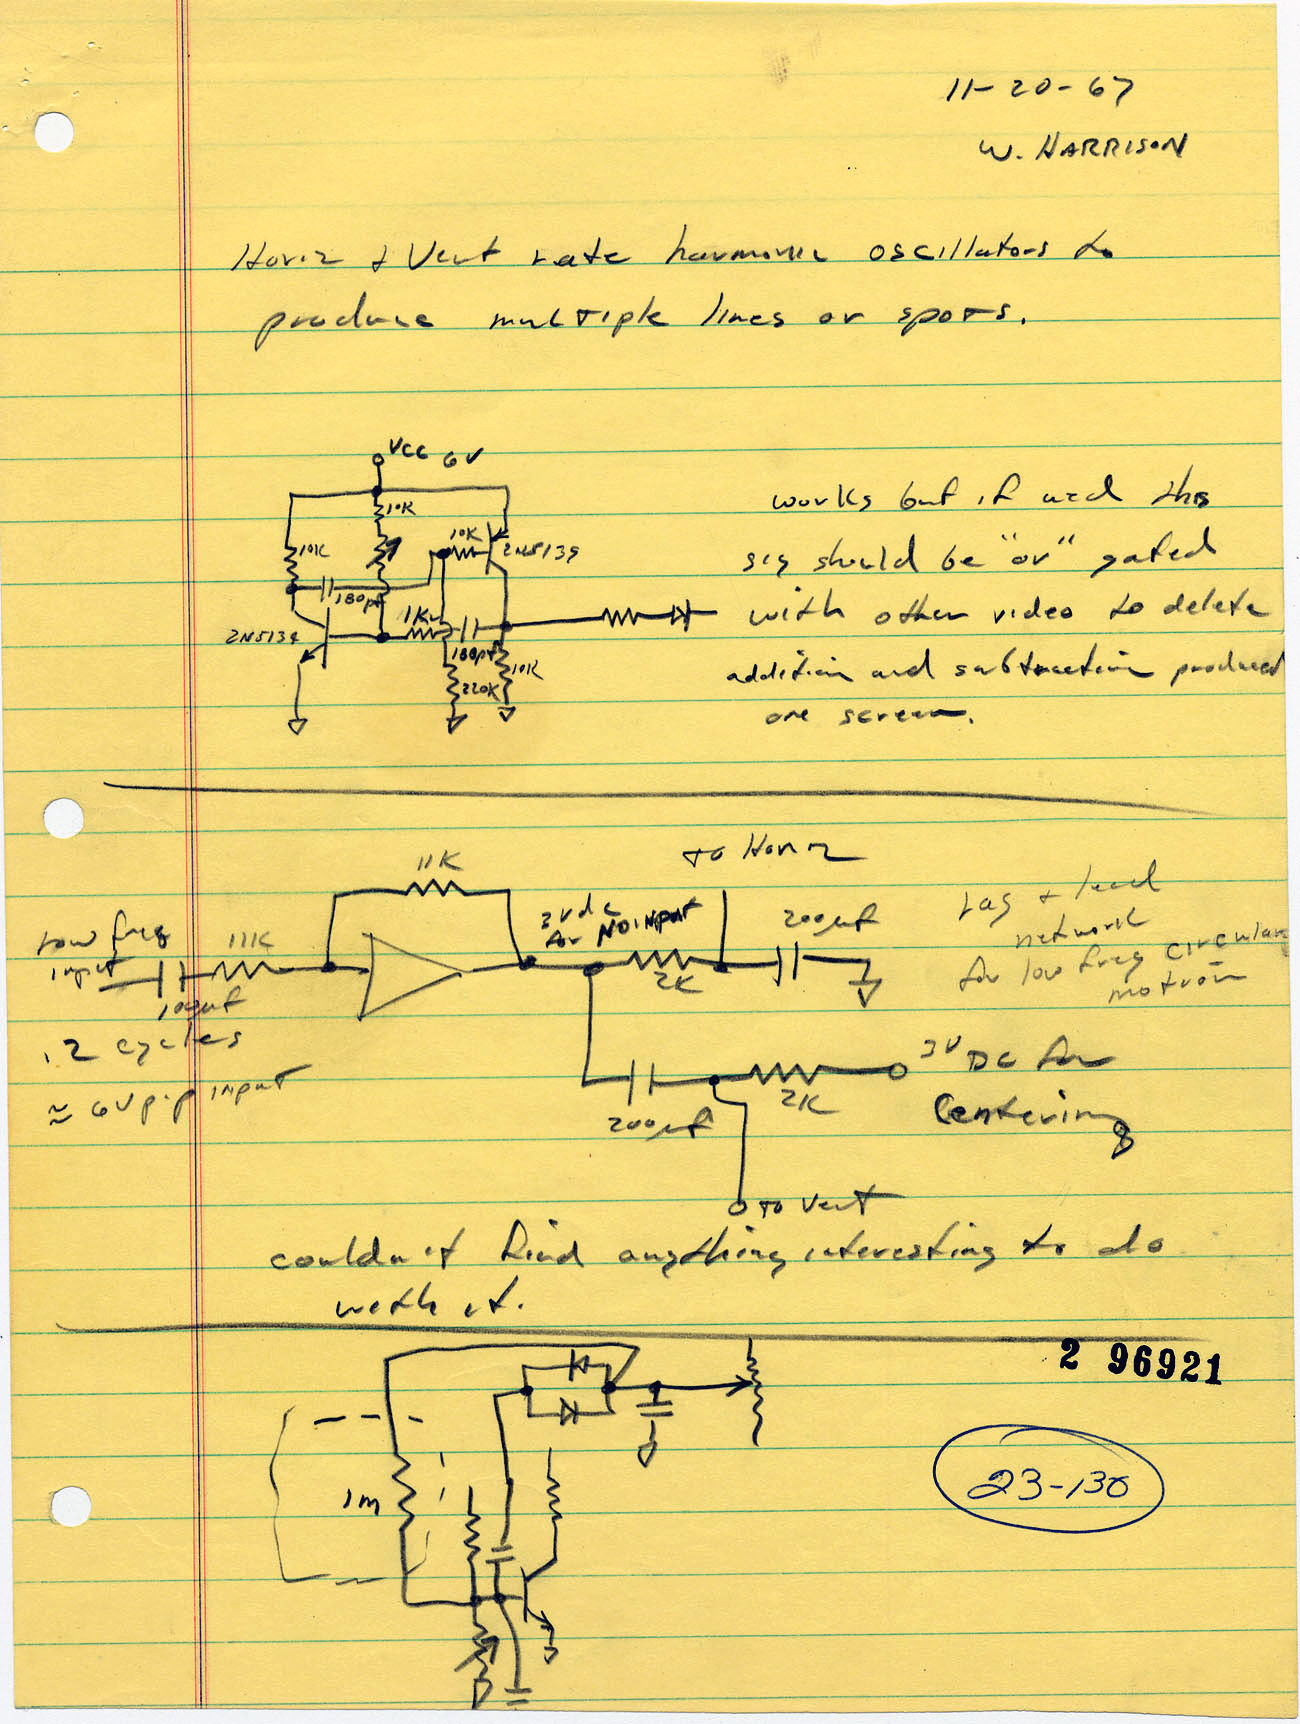 11-20-67
W. HARRISON
Horiz + Vert rate harmonic oscillators to
produce multiple lines or spots.
VCC 6V
10K
10K
10K
2N5139
180pf
1K
2N5134
180pf
10K
220K
works but if used this
sig should be "or" gated
with other video to delete
addition and subtraction produced
one screen.
To Horiz
11K
3vdc
for NO INPUT
200µf
Lag + lead
network
for low freq circular
motion
Low freq
input
11K
100µf
2K
.2 cycles
≈ 6V p-p input
3V DC for
Centering
200µf
2K
To Vert
couldn't find anything interesting to do
with it.
2 96921
1m
23-130